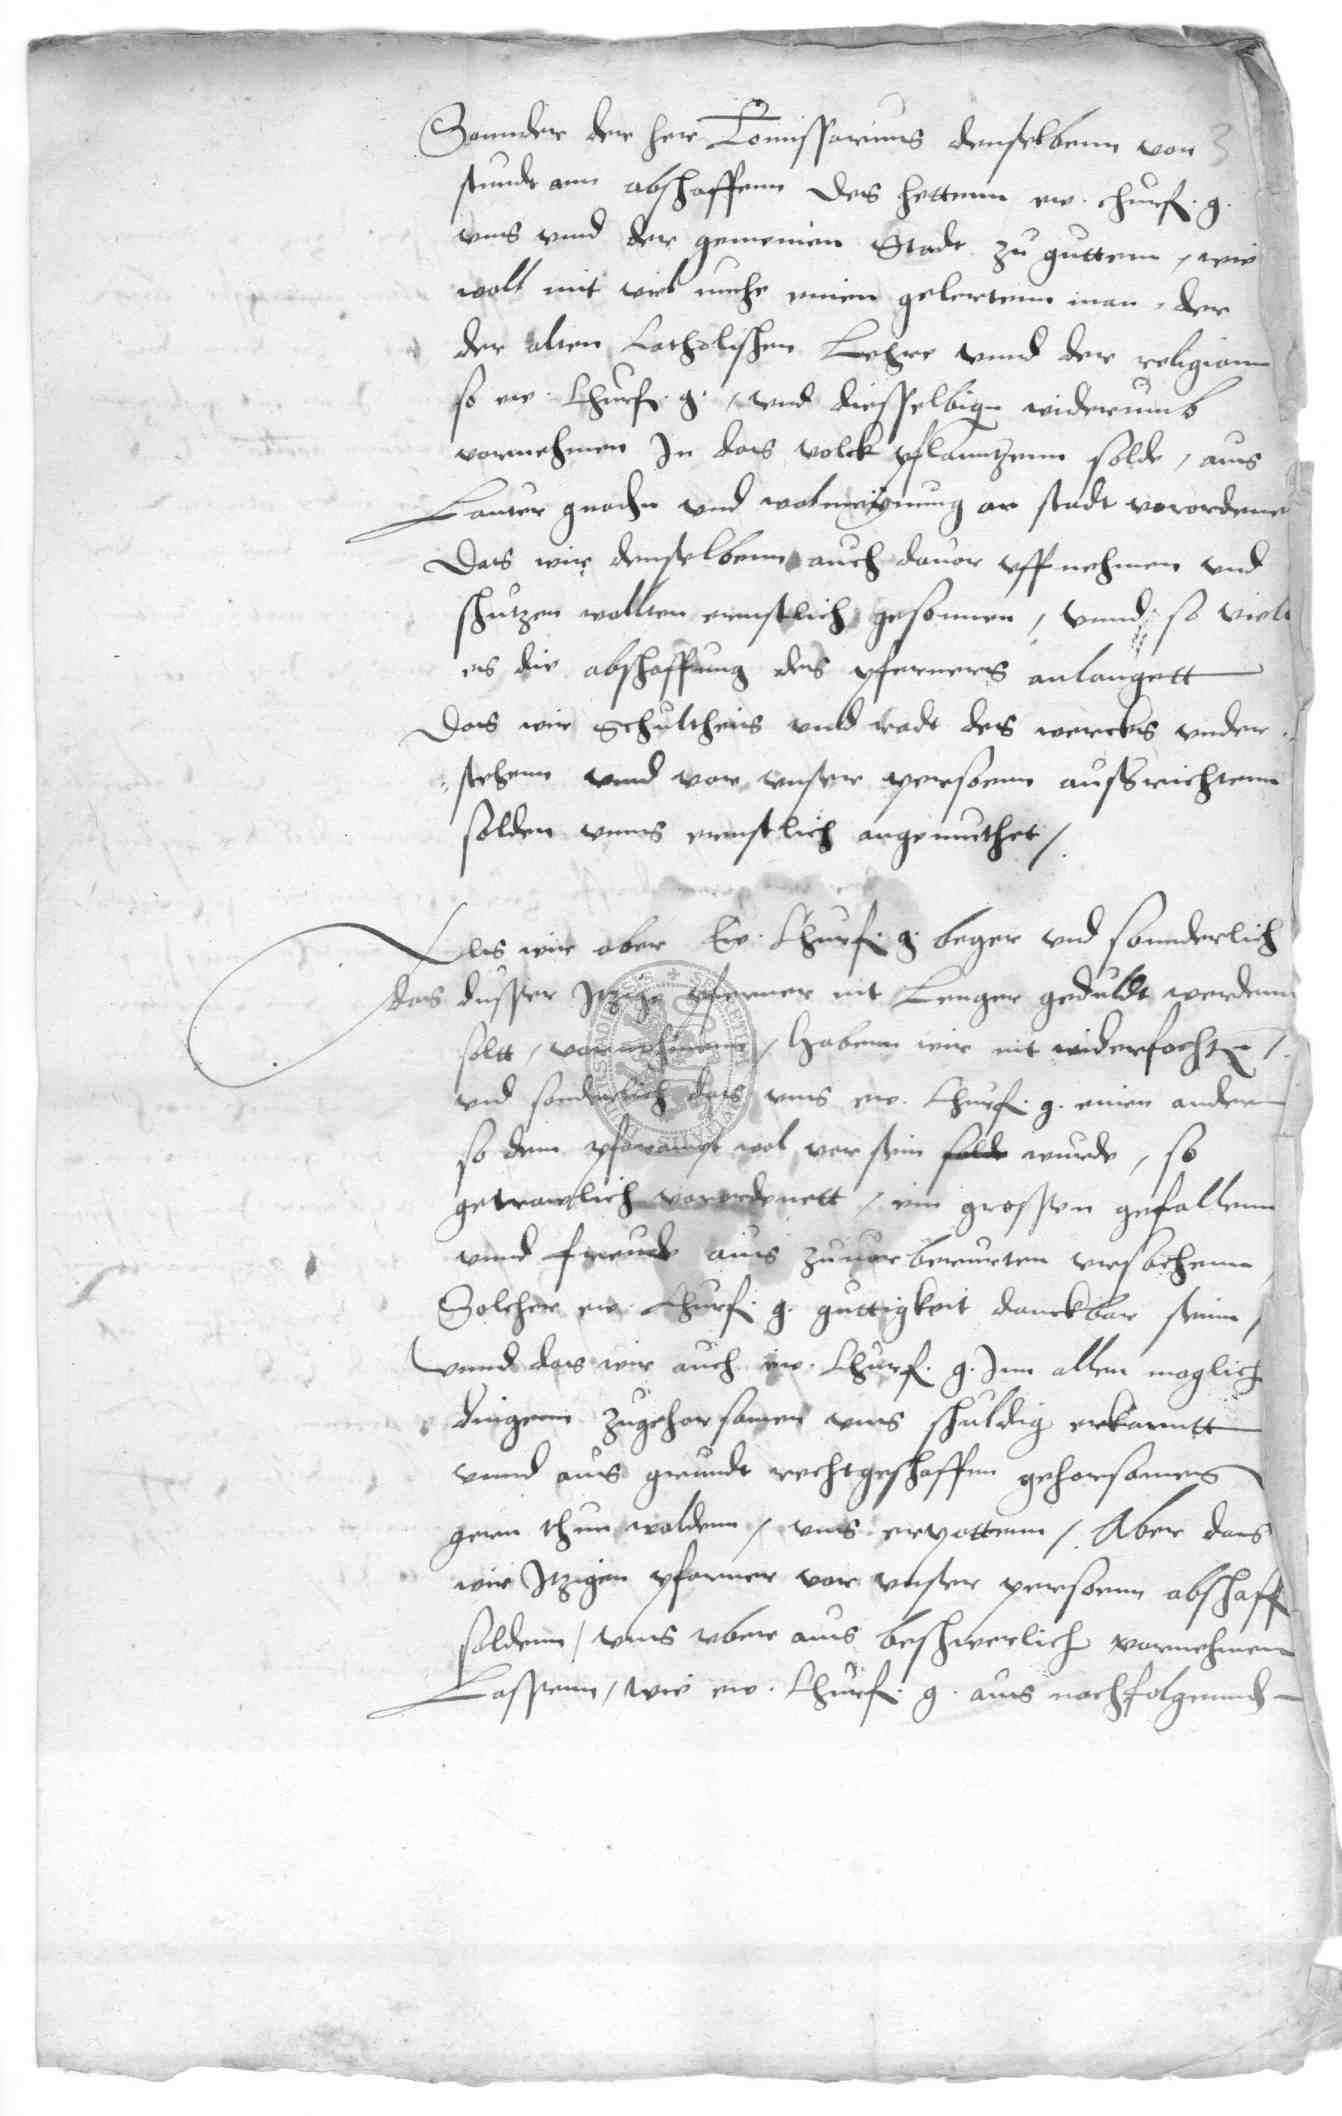 Sonnder der her Comissarius denselbenn von 3
stundt ann abschaffenn Des hettenn ew. churf. g.
vns vnnd der gemeinen Stadt zu guttem, wie
woll mit viel muehe einen gelertenn man, der
der alten Catholischen Lehre vnnd der religionn
so ew. Churf. g., vnd diesselbige widerumb
vornehmen In das volck pflanntzenn solde, aus
Lauter gnaden vnd wolmeynung an stadt verordenet
Das wir denselbenn auch davor vffnehmen vnd
schutzen wollten ernstlich gesonnen, vnnd so viell
es die abschaffung des pferners anlangett
Das wir Schultheis vnd radt des wercks vnder
stehenn vnnd vor vnser personn ausrichtenn
solden vnns ernstlich angemuthet /
Als wir aber Ew. Churf. g. beger vnd sonnderlich
das dusser Itzige pferner nit Lenger geduldt werdenn
soltt, vornohmenn, Habenn wir nit widerfochten /
vnd sonderlich das vns ew. Churf. g. einen andern
so dem pfarampt wol vor sein solde wurde, so
getrawlich verordenett, ein grossen gefallenn
vnnd freude aus zuuor berurten vrsachenn,
Solcher ew. Churf. g. guttigkeit danckbar seinn,
vnnd das wir auch ew. Churf. g. Inn allen moglich
dingenn zugehorsamen vns schuldig erkanntt
vnnd aus grundt rechtgeschaffen gehorsames
gern thun woldenn, vns erpottenn /. Aber das
wir Itzigen pfarner vor vnser personn abschaff
soldenn, vns vber aus beschwerlich vornehmen
Lassenn, wie ew. Churf. g. aus nachfolgennd